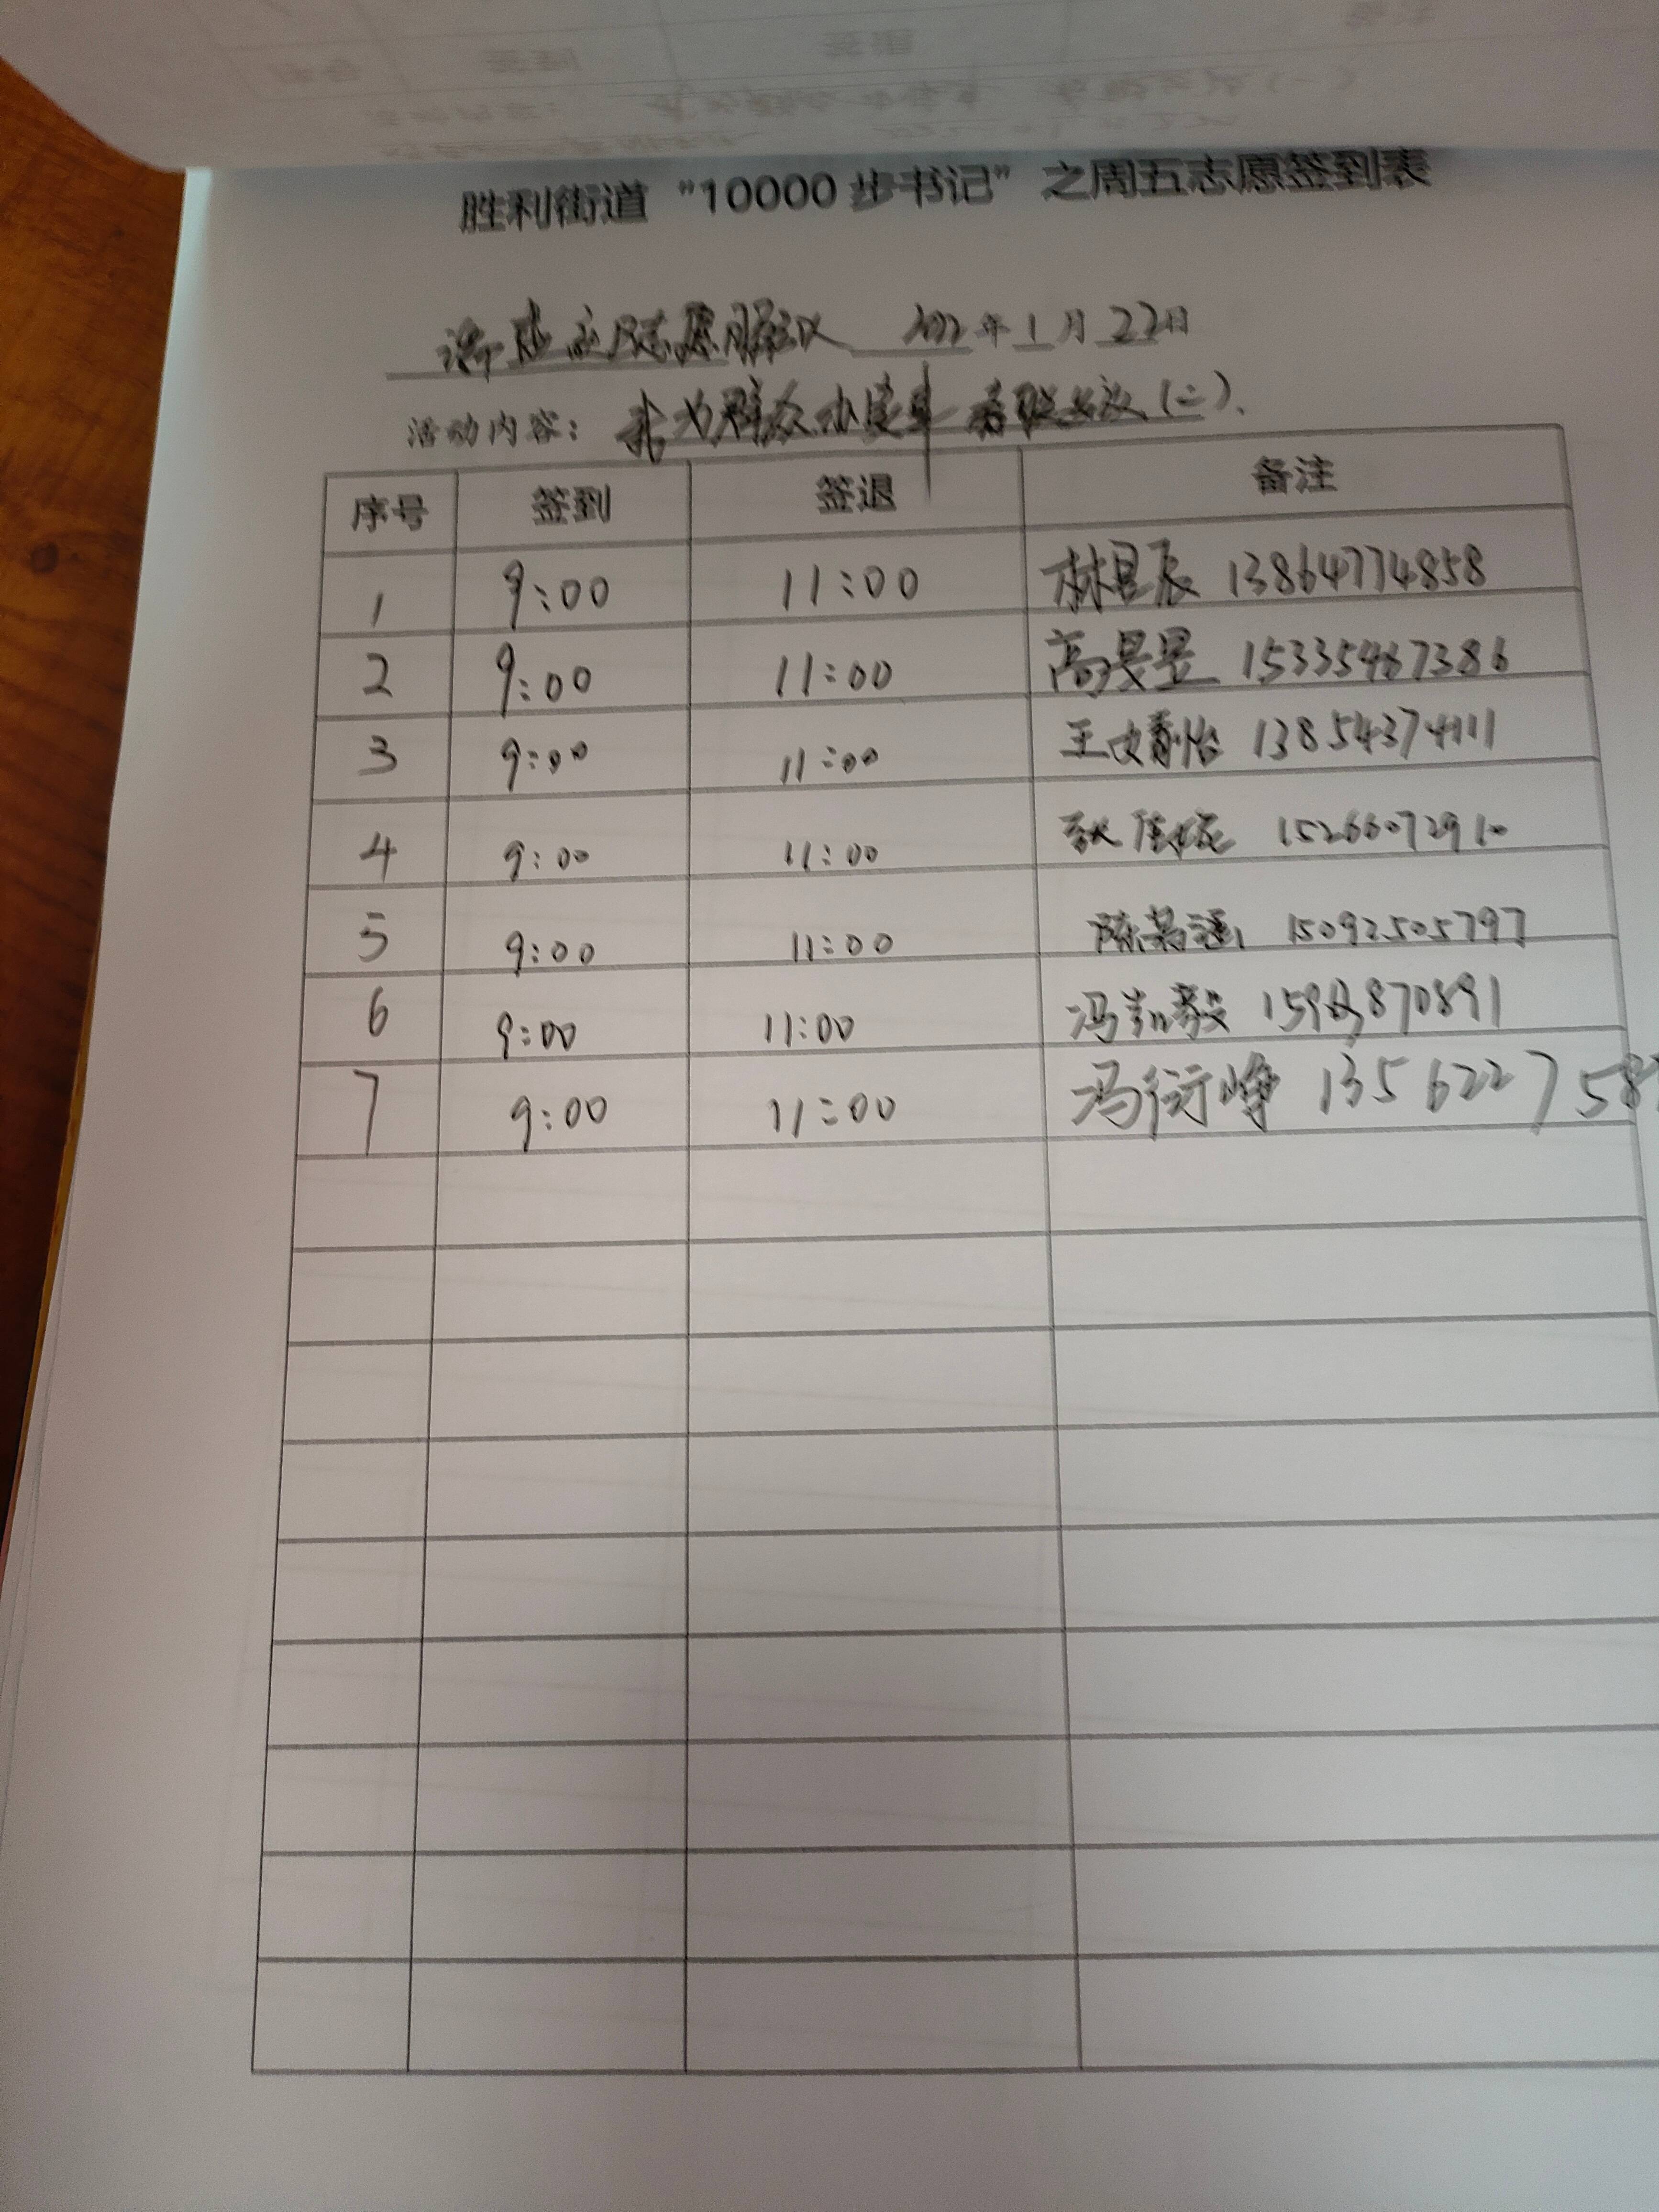 胜利街道 "10000 步书记" 之周五志愿签到表
志愿服务队 2022 年 1 月 22 日
活动内容： 我为群众办实事 (二)
序号 签到 签退 备注
1 9:00 11:00 林昱辰 13864774858
2 9:00 11:00 高 15335467386
3 9:00 11:00 王文 怡 13854374111
4 9:00 11:00 耿佳妮 15266072910
5 9:00 11:00 陈 15092505797
6 9:00 11:00 冯凯毅
7 9:00 11:00 冯衍峥 1356227587